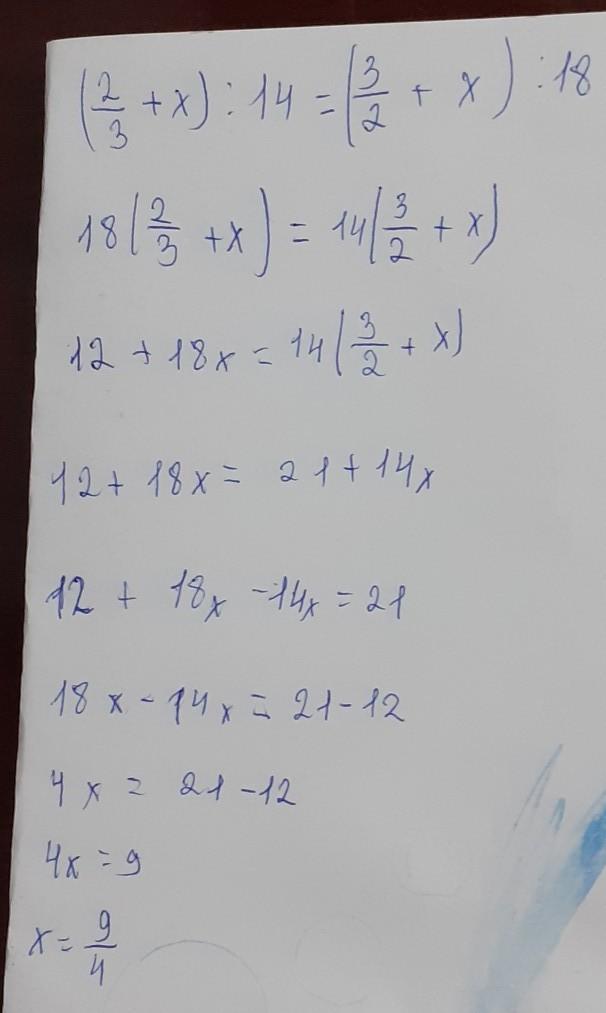 (2/3 + x) : 14 = (3/2 + x) : 18
18(2/3 + x) = 14(3/2 + x)
12 + 18x = 14(3/2 + x)
12 + 18x = 21 + 14x
12 + 18x - 14x = 21
18x - 14x = 21 - 12
4x = 21 - 12
4x = 9
x = 9/4